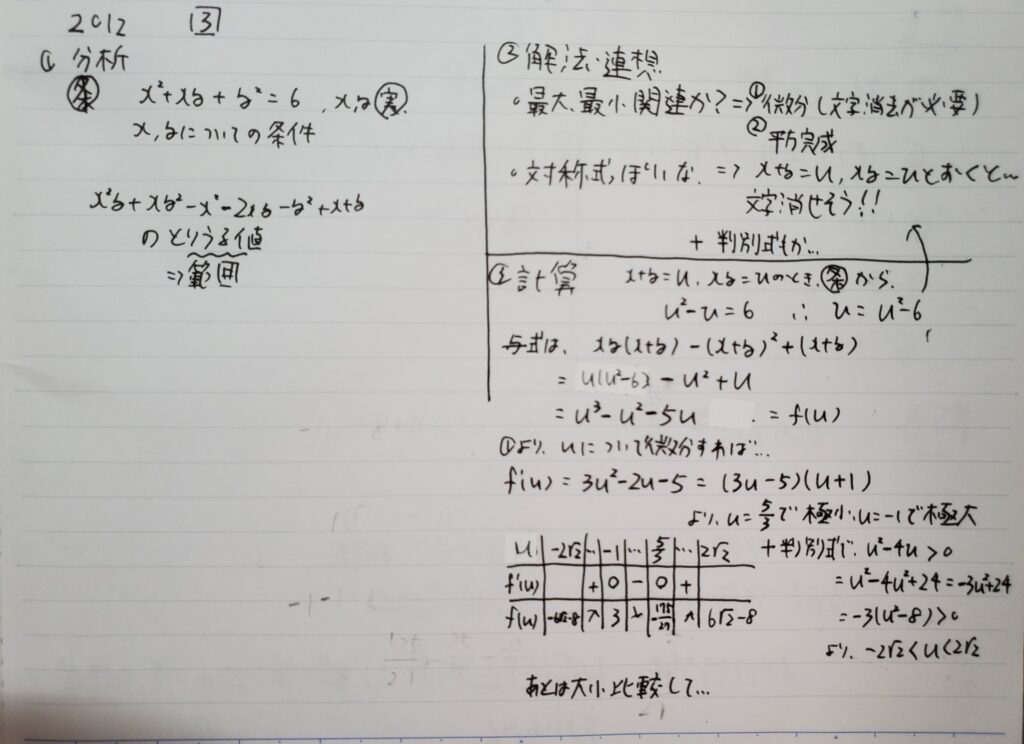 2012 ③
① 分析
㊫ x²+xy+y²=6 , x,y 実
x,yについての条件
x²y+xy²-x²-2xy-y²+x+y
のとりうる値
⇒範囲
② 解法連想
・最大、最小関連か?⇒①微分(文字消去が必要)
②平方完成
・対称式っぽいな. ⇒ x+y=u, xy=vとおくと…
文字消せそう!!
+ 判別式もか…
③ 計算 x+y=u, xy=vのとき、条から.
u²-v=6 ∴ v=u²-6
与式は、 xy(x+y)-(x+y)²+(x+y)
= u(u²-6)-u²+u
= u³-u²-5u =f(u)
①より、uについて微分すれば…
f'(u)=3u²-2u-5=(3u-5)(u+1)
より、u=5/3で極小、u=-1で極大
+判別式で、u²-4v>0
=u²-4u²+24=-3u²+24
=-3(u²-8)>0
より、-2√2<u<2√2
u | -2√2 | … | -1 | … | 5/3 | … | 2√2
f'(u) | | + | 0 | - | 0 | + |
f(u) | -6√2-8 | ↗ | 3 | ↘ | -175/27 | ↗ | 6√2-8
あとは大小比較して…